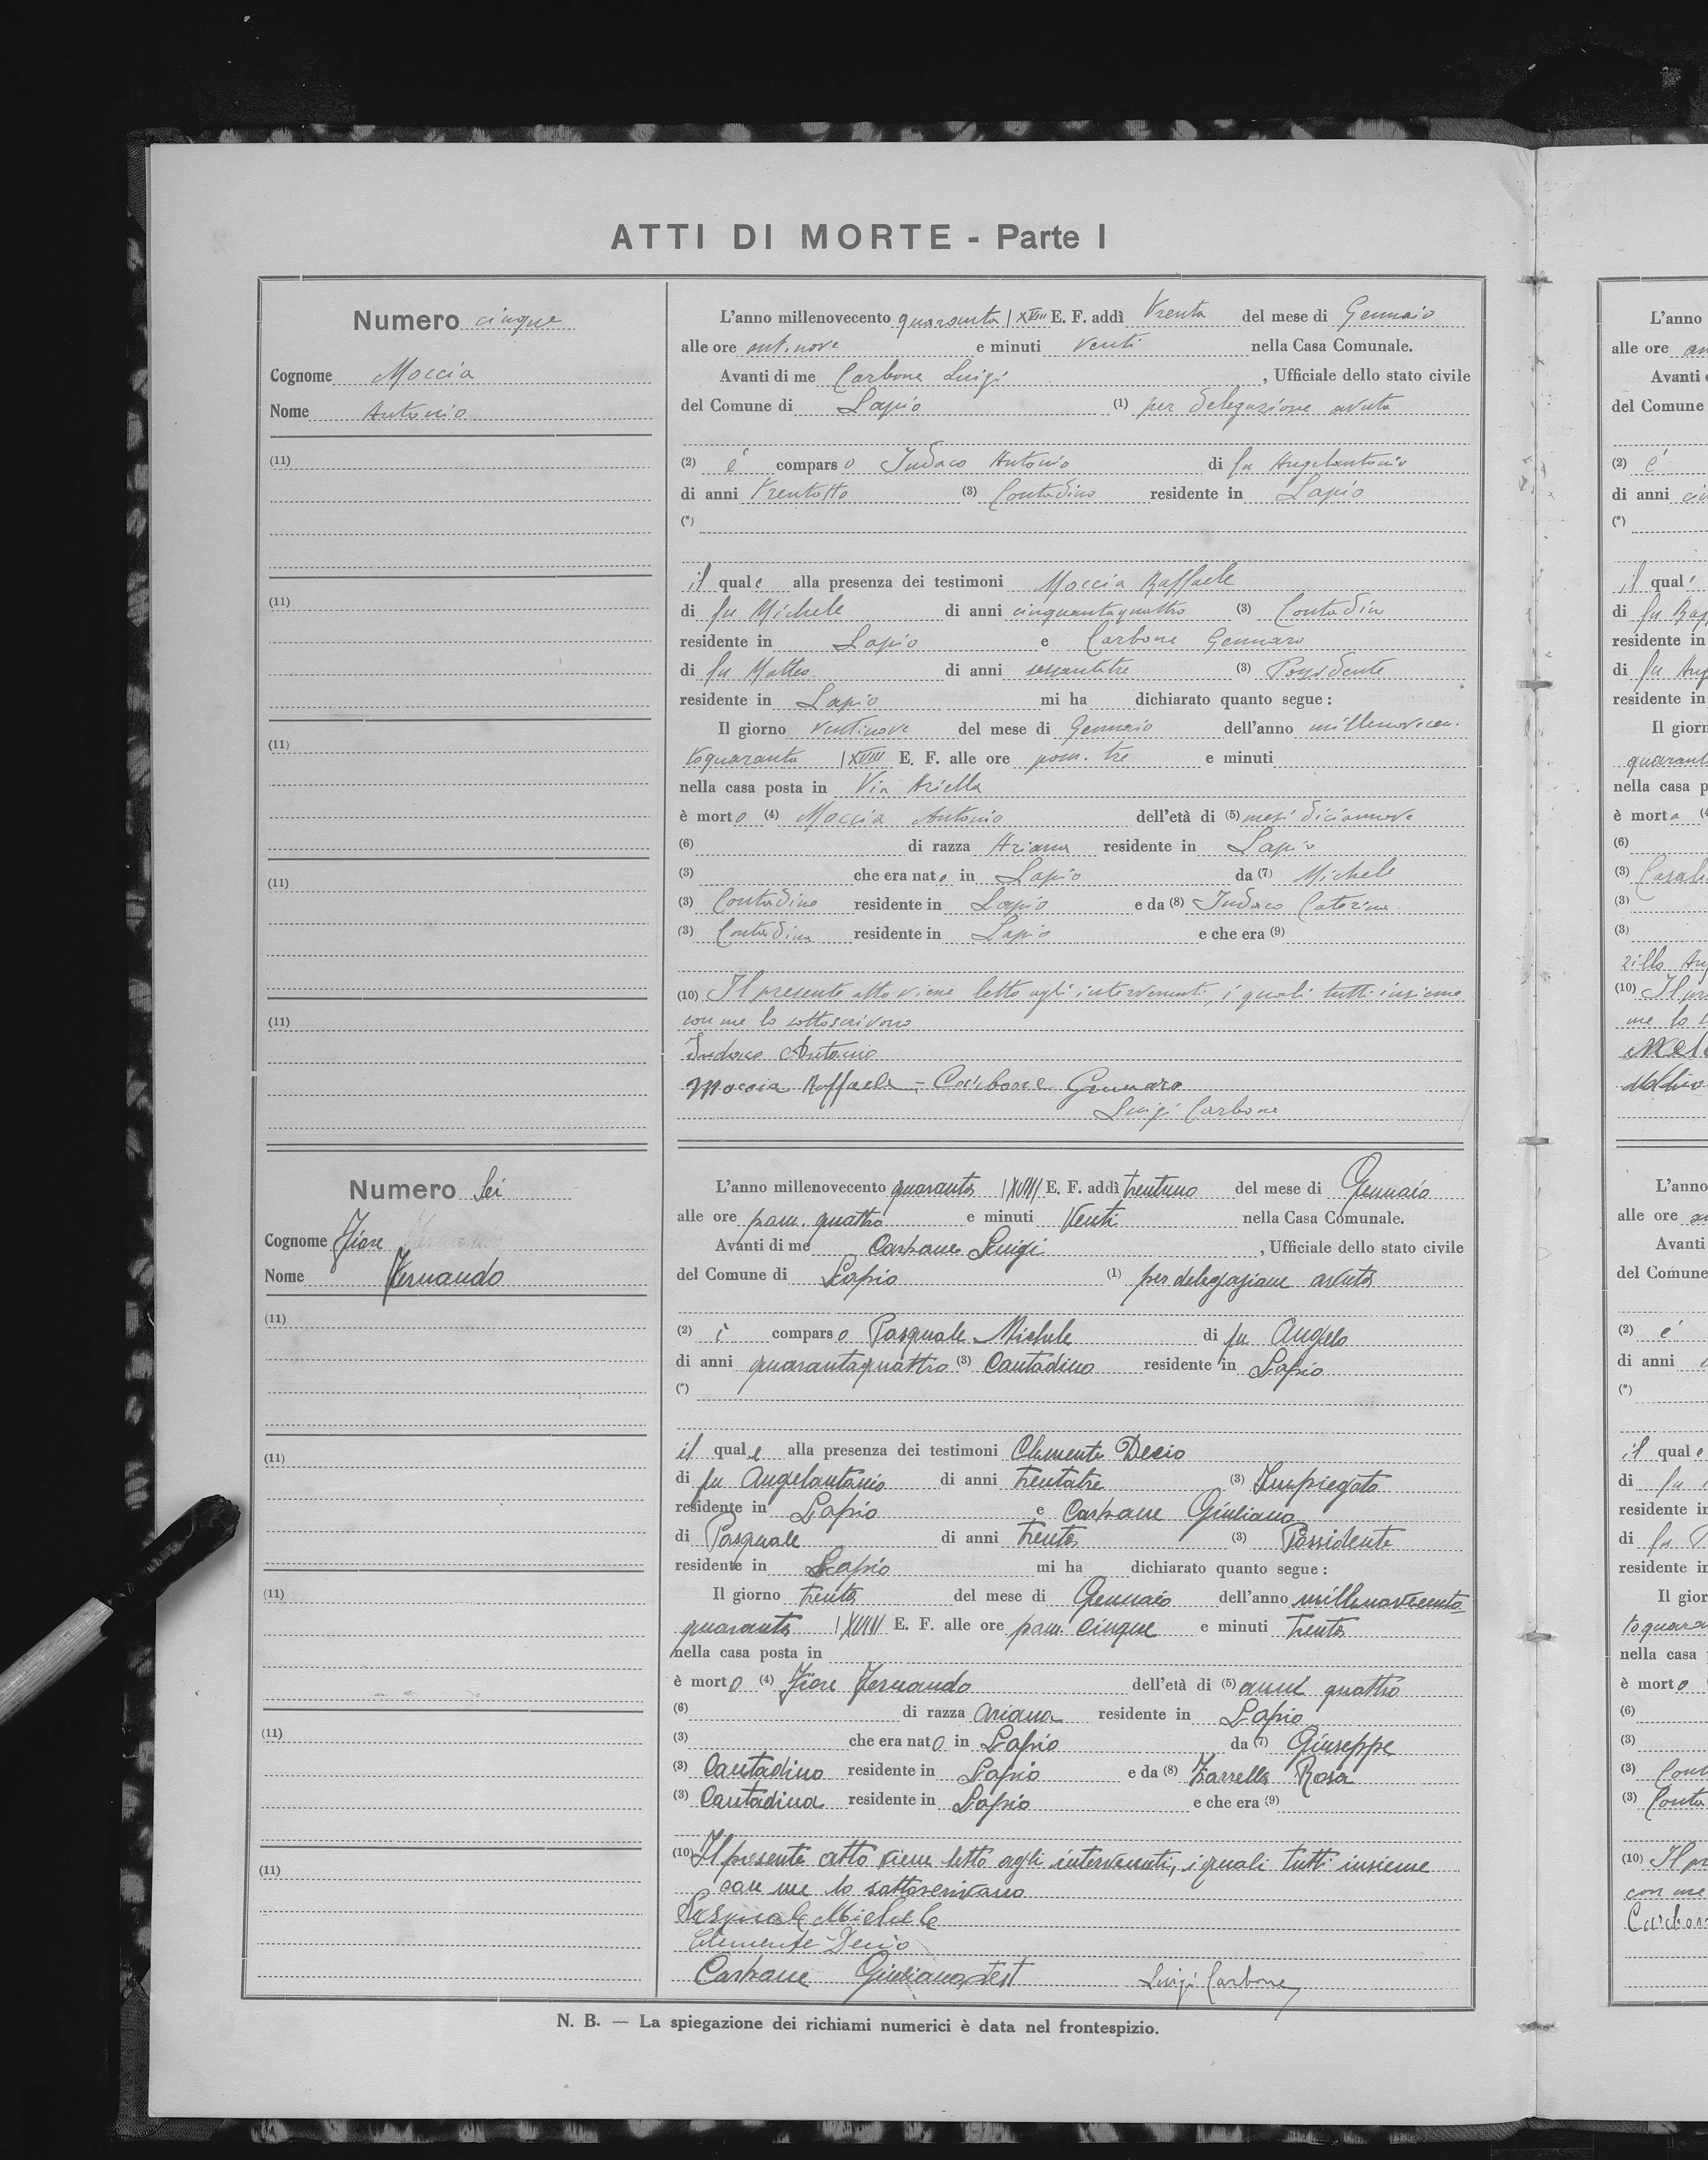 ATTI DI MORTE - Parte I
Numero cinque
Cognome Moccia
Nome Antonio
(11)
(11)
(11)
(11)
(11)
L'anno millenovecento quaranta / XVIII E. F. addì Trenta del mese di Gennaio
alle ore ant. nove e minuti venti nella Casa Comunale.
Avanti di me Carbone Luigi, Ufficiale dello stato civile
del Comune di Lapio (1) per delegazione avuta
(2) è comparso Indaco Antonio di fu Angelantonio
di anni trentotto (3) Contadino residente in Lapio
(*)
il quale alla presenza dei testimoni Moccia Raffaele
di fu Michele di anni cinquantaquattro (3) Contadin
residente in Lapio e Carbone Gennaro
di fu Matteo di anni sessantatre (3) Possidente
residente in Lapio mi ha dichiarato quanto segue :
Il giorno ventinove del mese di Gennaio dell'anno millenovecen-
toquaranta / XVIII E. F. alle ore pom. tre e minuti
nella casa posta in Via Ariella
è morto (4) Moccia Antonio dell'età di (5) mesi diciannove
(6) di razza Ariana residente in Lapio
(3) che era nato in Lapio da (7) Michele
(3) Contadino residente in Lapio e da (8) Indaco Caterina
(3) Contadina residente in Lapio e che era (9)
(10) Il presente atto viene letto agli intervenuti, i quali tutti insieme
con me lo sottoscrivono
Indaco Antonio
Moccia Raffaele - Carbone Gennaro
Luigi Carbone
Numero Sei
Cognome Fiore
Nome Fernando
(11)
(11)
(11)
(11)
(11)
L'anno millenovecento quaranta / XVIII E. F. addì trentuno del mese di Gennaio
alle ore pom. quattro e minuti Venti nella Casa Comunale.
Avanti di me Carbone Luigi, Ufficiale dello stato civile
del Comune di Lapio (1) per delegazione avuta
(2) è comparso Pasquale Michele di fu Angelo
di anni quarantaquattro (3) Contadino residente in Lapio
(*)
il quale alla presenza dei testimoni Clemente Decio
di fu Angelantonio di anni trentatre (3) Impiegato
residente in Lapio e Carbone Giuliano
di Pasquale di anni trenta (3) Possidente
residente in Lapio mi ha dichiarato quanto segue :
Il giorno trenta del mese di Gennaio dell'anno millenovecento
quaranta / XVIII E. F. alle ore pom. cinque e minuti trenta
nella casa posta in
è morto (4) Fiore Fernando dell'età di (5) anni quattro
(6) di razza ariana residente in Lapio
(3) che era nato in Lapio da (7) Giuseppe
(3) Contadino residente in Lapio e da (8) Zarrella Rosa
(3) Contadina residente in Lapio e che era (9)
(10) Il presente atto viene letto agli intervenuti, i quali tutti insieme
con me lo sottoscrivono
Pasquale Michele
Clemente Decio
Carbone Giuliano test Luigi Carbone
N. B. — La spiegazione dei richiami numerici è data nel frontespizio.